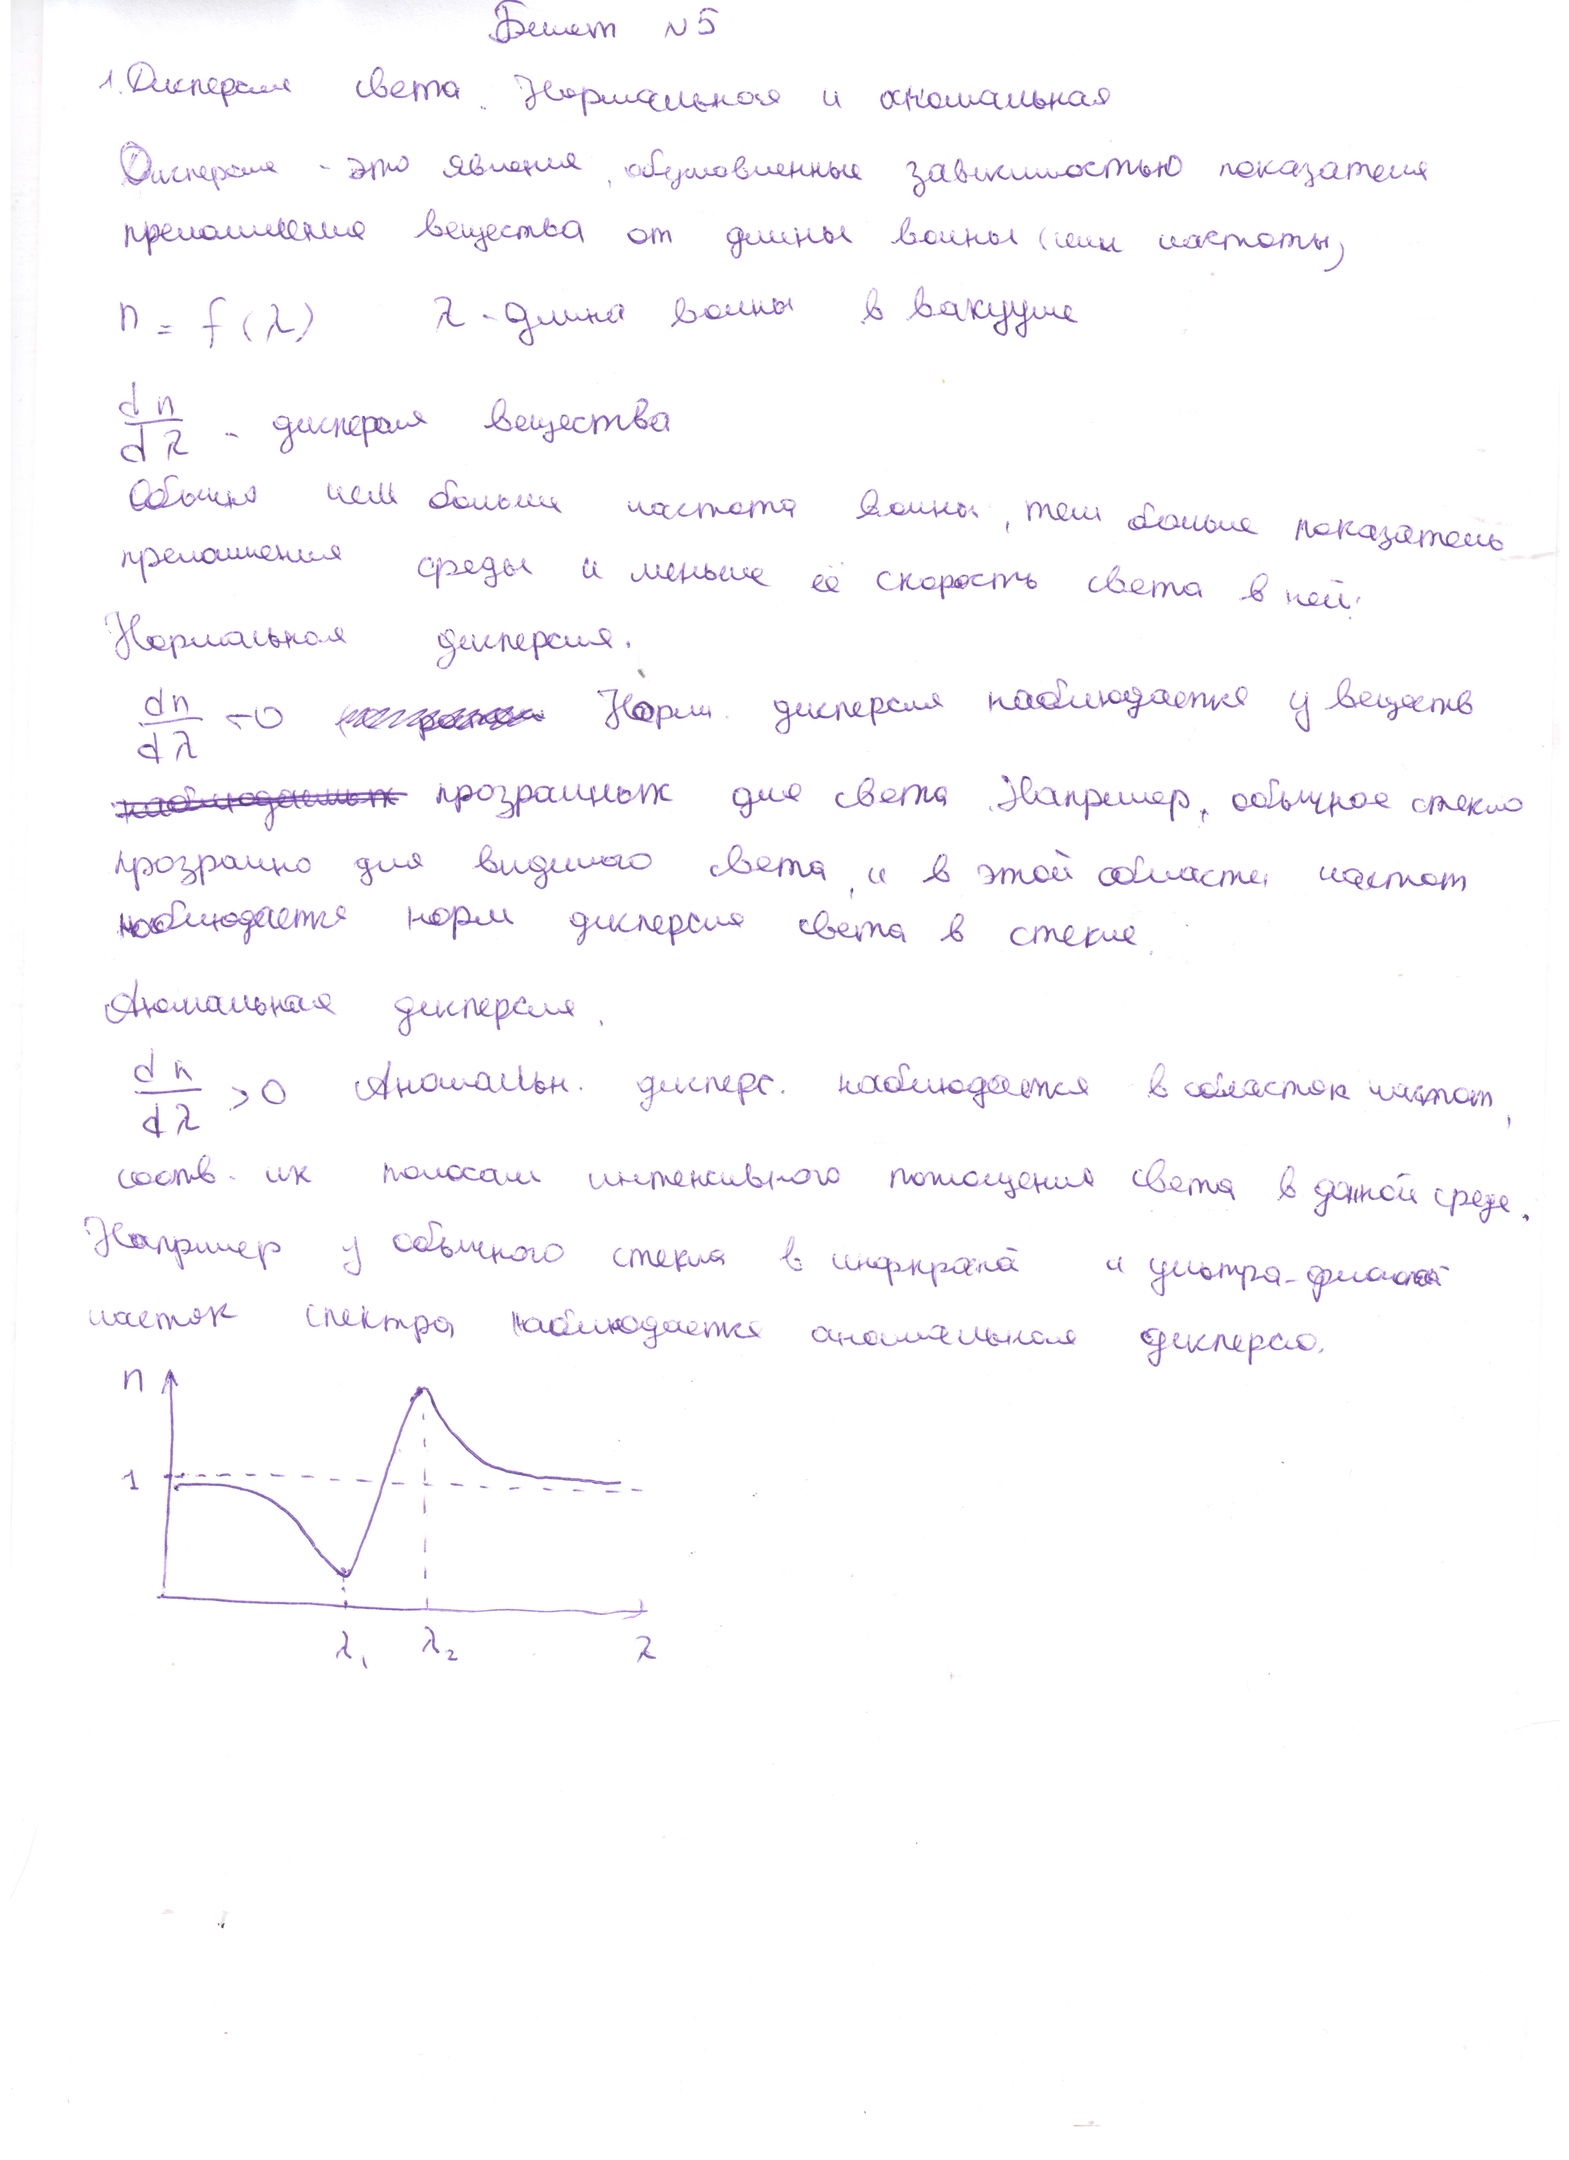 Билет N 5
1. Дисперсия света. Нормальная и аномальная
Дисперсия - это явления, обусловленные зависимостью показателя
преломления вещества от длины волны (или частоты)
n = f(λ) λ - длина волны в вакууме
dn/dλ - дисперсия вещества
Обычно чем больше частота волны, тем больше показатель
преломления среды и меньше её скорость света в ней.
Нормальная дисперсия.
dn/dλ < 0 Норм. дисперсия наблюдается у веществ
прозрачных для света. Например, обычное стекло
прозрачно для видимого света, и в этой области частот
наблюдается норм дисперсия света в стекле.
Аномальная дисперсия.
dn/dλ > 0 Аномальн. дисперс. наблюдается в областях частот,
соотв. их полосам интенсивного поглощения света в данной среде.
Например у обычного стекла в инфкрасной и ультра-фиолетовой
частях спектра наблюдается аномальная дисперсия.
n
1
λ₁ λ₂ λ